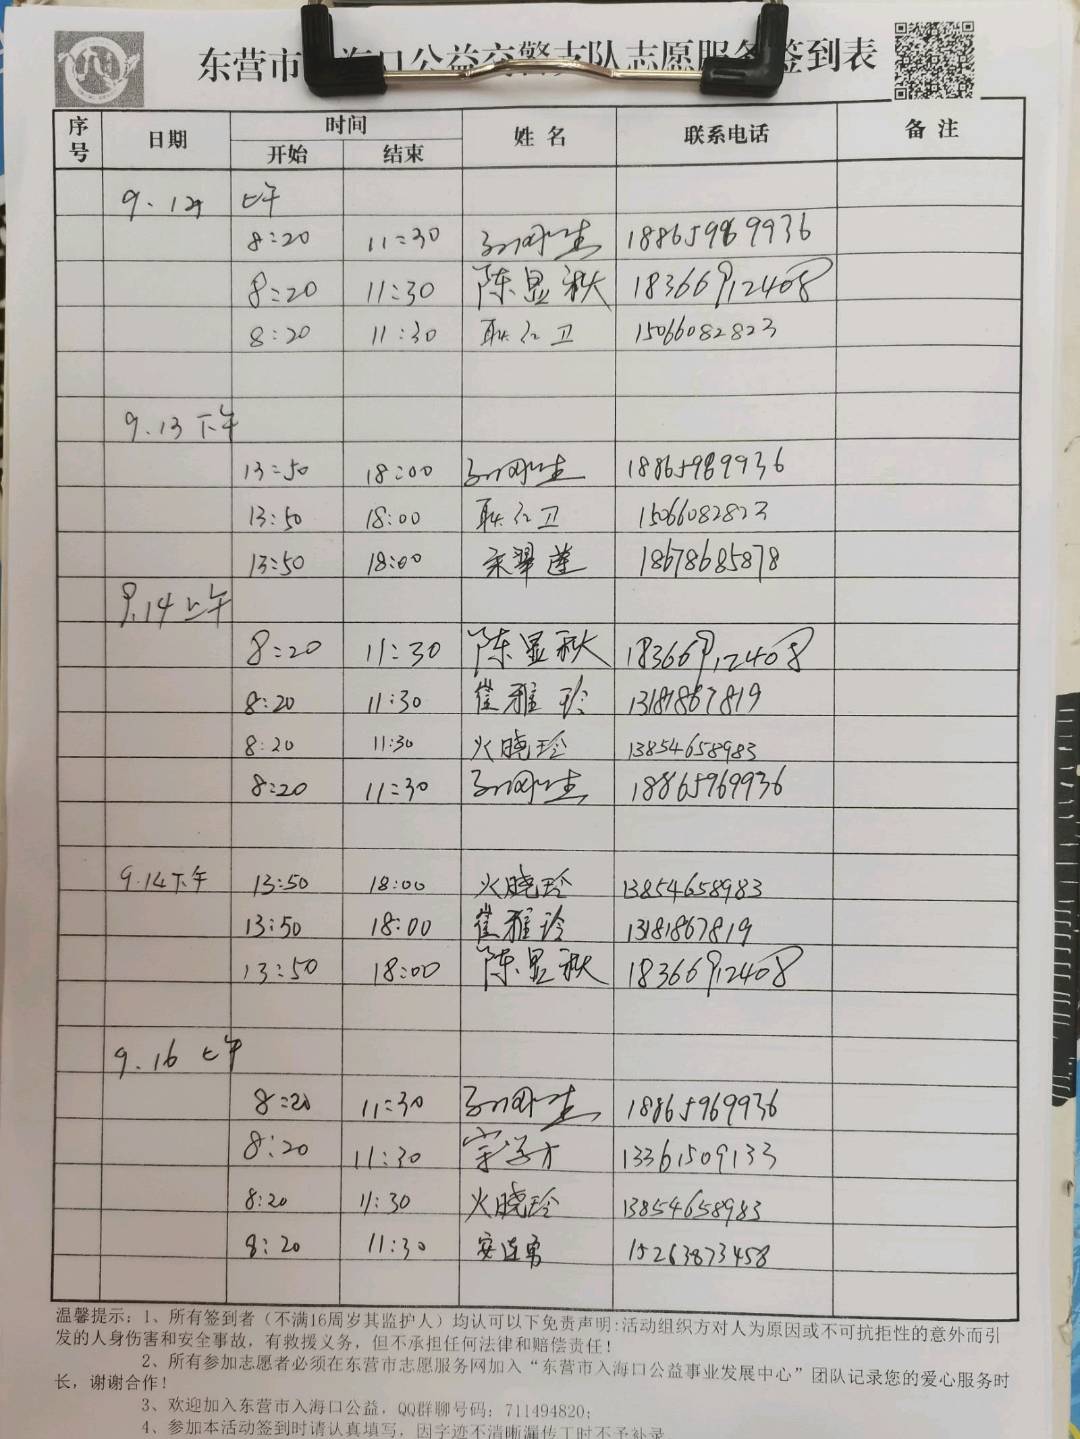 东营市入海口公益交警支队志愿服务签到表
序号 日期 时间 姓名 联系电话 备注
开始 结束
9.12 上午
8:20 11:30 18865969936
8:20 11:30 陈显秋 18366912408
8:20 11:30 耿红卫 15066082823
9.13 下午
13:50 18:00 18865969936
13:50 18:00 耿红卫 15066082823
13:50 18:00 宋翠莲 18678685878
9.14 上午
8:20 11:30 陈显秋 18366912408
8:20 11:30 崔雅玲 13181867819
8:20 11:30 火晓玲 13854658983
8:20 11:30 18865969936
9.14下午 13:50 18:00 火晓玲 13854658983
13:50 18:00 崔雅玲 13181867819
13:50 18:00 陈显秋 18366912408
9.16 上午
8:20 11:30 18865969936
8:20 11:30 宗学才 13361509133
8:20 11:30 火晓玲 13854658983
8:20 11:30 安连勇 15263873458
温馨提示:1、所有签到者（不满16周岁其监护人）均认可以下免责声明:活动组织方对人为原因或不可抗拒性的意外而引
发的人身伤害和安全事故，有救援义务，但不承担任何法律和赔偿责任!
2、所有参加志愿者必须在东营市志愿服务网加入“东营市入海口公益事业发展中心”团队记录您的爱心服务时
长，谢谢合作!
3、欢迎加入东营市入海口公益，QQ群聊号码: 711494820;
4、参加本活动签到时请认真填写，因字迹不清晰漏传工时不予补录